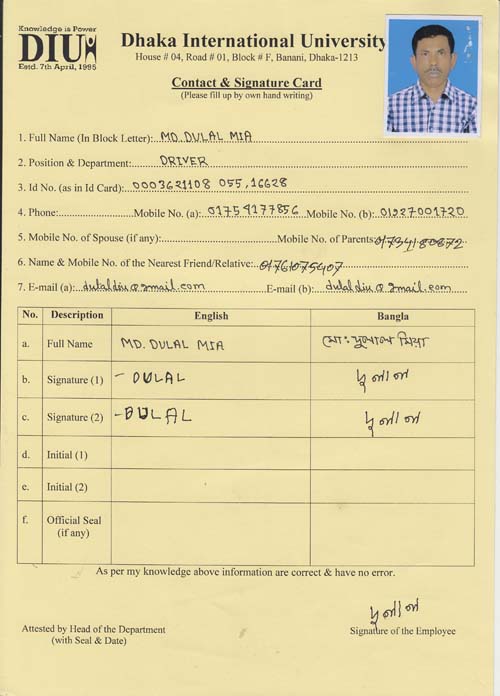 Knowledge is Power
DIU
Estd. 7th April, 1995
Dhaka International University
House # 04, Road # 01, Block # F, Banani, Dhaka-1213
Contact & Signature Card
(Please fill up by own hand writing)
1. Full Name (In Block Letter): MD. DULAL MIA
2. Position & Department: DRIVER
3. Id No. (as in Id Card): 0003621108 055,16628
4. Phone: Mobile No. (a): 01754177856 Mobile No. (b): 01927001720
5. Mobile No. of Spouse (if any): Mobile No. of Parents: 01734180872
6. Name & Mobile No. of the Nearest Friend/Relative: 01761075407
7. E-mail (a): dulaldiu@gmail.com E-mail (b): dulaldiu@gmail.com
No. Description English Bangla
a. Full Name MD. DULAL MIA মোঃ দুলাল মিয়া
b. Signature (1) - DULAL দুলাল
c. Signature (2) - DULAL দুলাল
d. Initial (1)
e. Initial (2)
f. Official Seal
(if any)
As per my knowledge above information are correct & have no error.
দুলাল
Attested by Head of the Department Signature of the Employee
(with Seal & Date)